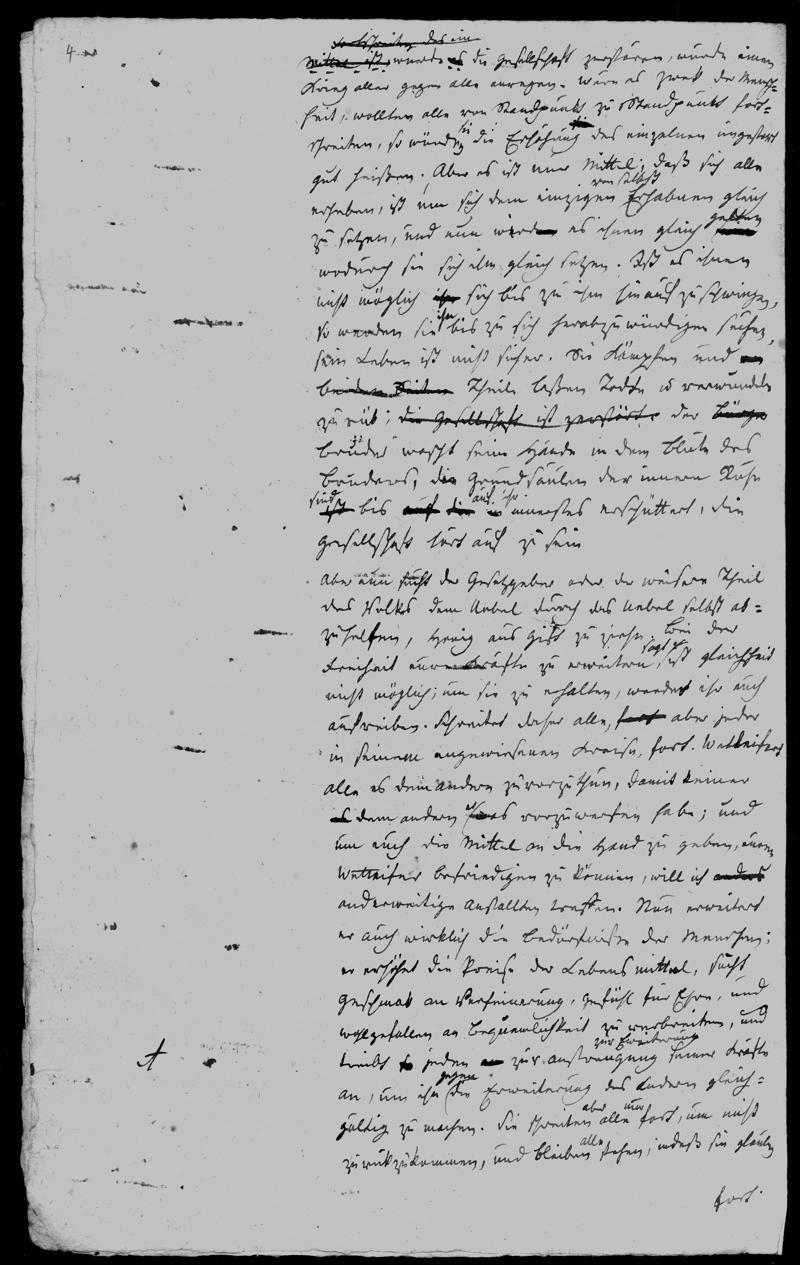 4
fortschreiten, das ein
Mittel ist, wurde es die Gesellschaft zerstören, wurde einen
Krieg aller gegen alle anregen. Wäre es Zwek der Mensch=
heit, wollten alle von Standpunkt zu Standpunkt fort=
schreiten, so würden sie die Erhöhung des einzelnen ungestört
gut heißen. Aber es ist nur Mittel; daß sich alle
von selbst
erheben, ist um sich dem einzigen Erhabnen gleich
zu setzen, und nun wird es ihnen gleich gelten
wodurch sie sich ihm gleich setzen. Ist es ihnen
nicht möglich sich bis zu ihm hinauf zu schwingen,
so werden sie ihn bis zu sich herabzuwürdigen suchen,
sein Leben ist nicht sicher. Sie kämpfen und
beiden Seiten Theile laßen Todte u verwundete
zurük; die Gesellschaft ist zerstört. der Bürge
Bruder wascht seine Hände in dem Blute des
Bruders, die Grundsäulen der innern Ruhe
sind ist bis auf die auf ihr innerstes erschüttert, die
Gesellschaft hört auf zu sein
Aber nun sucht der Gesetzgeber oder der weisere Theil
des Volkes dem Uebel durch das Uebel selbst ab=
zuhelfen, Honig aus Gift zu ziehn. Bei der
Freiheit eure Kräfte zu erweitern, sagt er, ist Gleichheit
nicht möglich; um sie zu erhalten, werdet ihr euch
aufreiben. Schreitet daher alle, fort aber jeder
in seinem angewiesenen Kreise, fort. Wetteifert
alle es dem andern zuvorzuthun, damit keiner
es dem andern etwas vorzuwerfen habe; und
um euch die Mittel an die Hand zu geben, euren
Wetteifer befriedigen zu können, will ich anders
anderweitige Anstallten treffen. Nun erweitert
er auch wirklich die Bedürfniße der Menschen;
er erhöhet die Preise der Lebensmittel, sucht
Geschmak an Verfeinerung, Gefühl für Ehre, und
wohlgefallen an Bequemlichkeit zu verbreiten, und
zur Erweiterung
treibt so jeden zur anstrengung seiner Kräfte
an, um ihn gegen die Erweiterung des Andern gleich=
gültig zu machen. Sie schreiten aber alle nur fort, um nicht
zurükzukommen, und bleiben alle stehen, indeß sie glauben
fort.